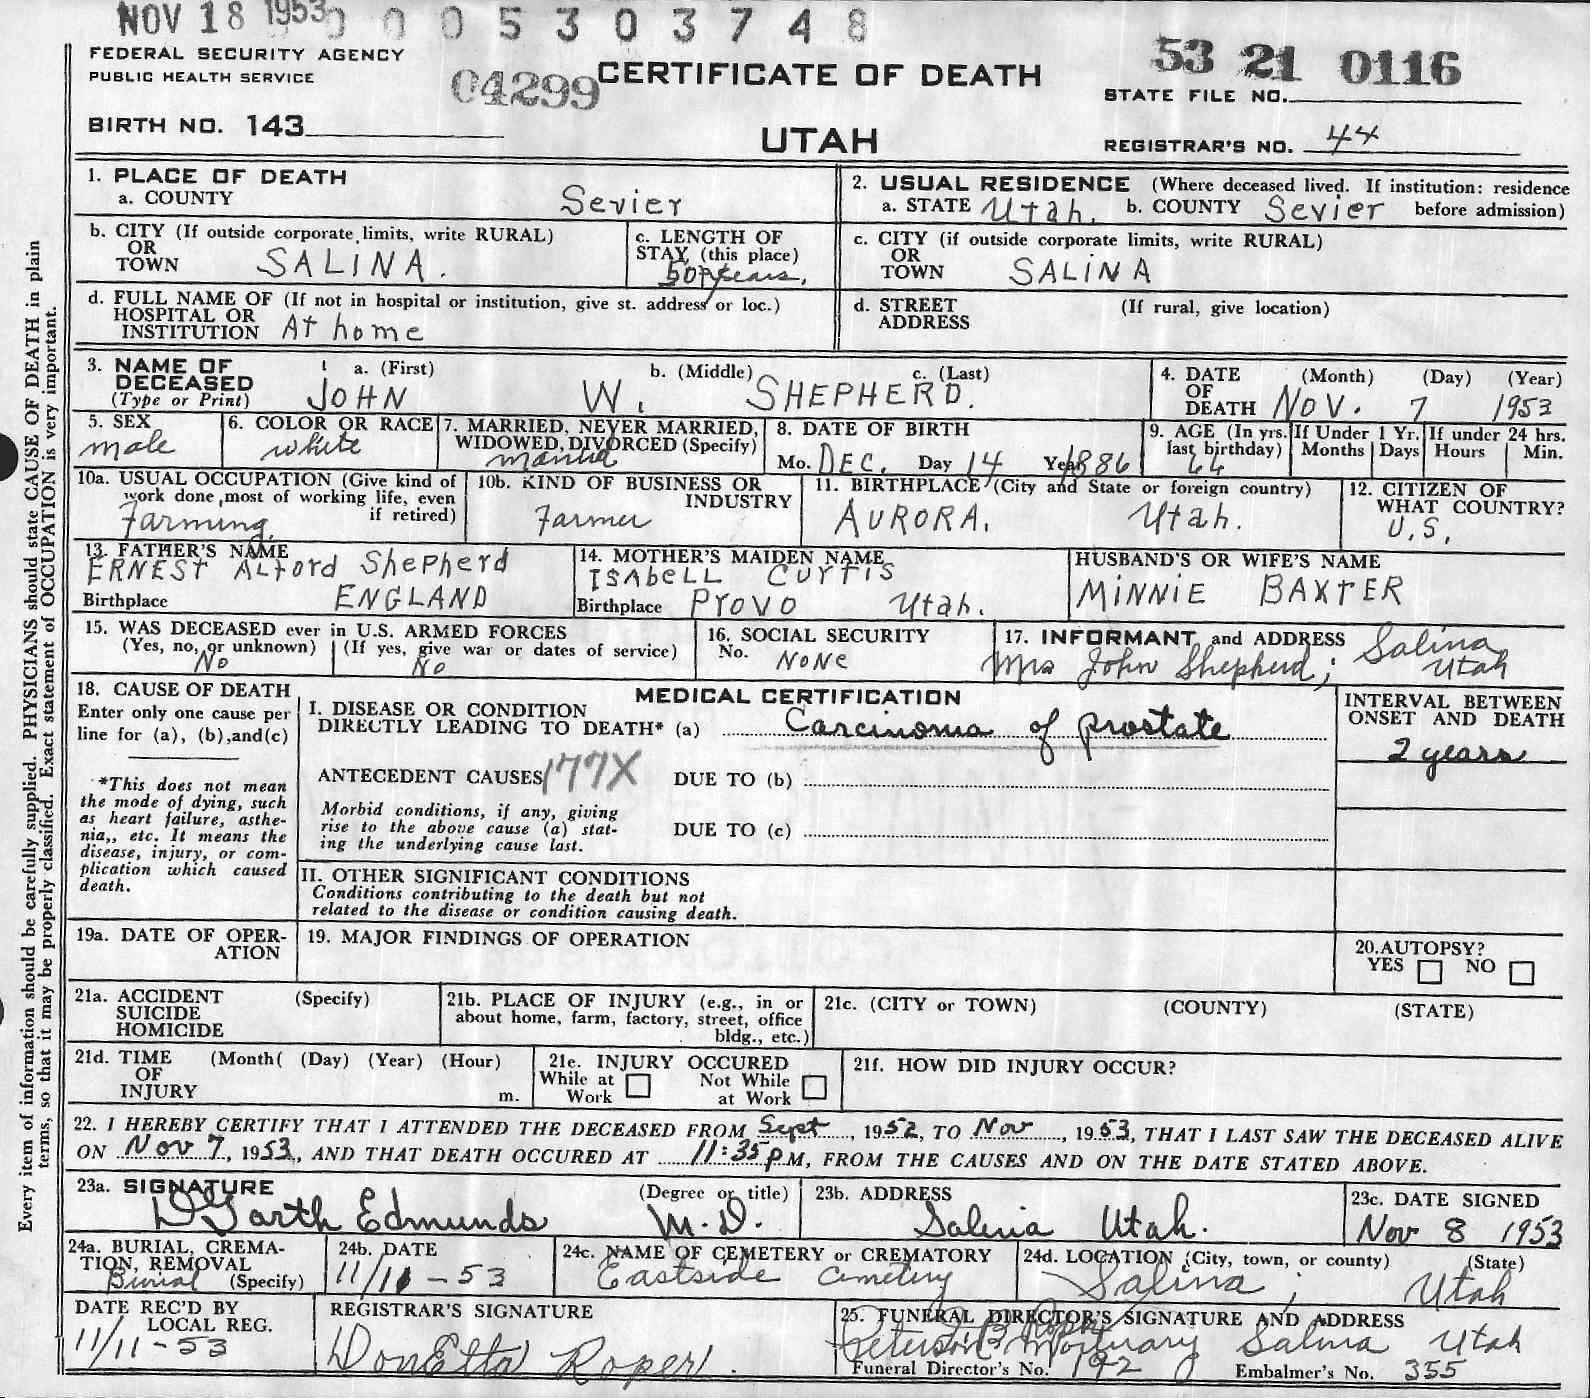 NOV 18 1953 0 0 0 5 3 0 3 7 4 8
FEDERAL SECURITY AGENCY
PUBLIC HEALTH SERVICE
04299
CERTIFICATE OF DEATH
53 21 0116
STATE FILE NO.
BIRTH NO. 143
UTAH
REGISTRAR'S NO. 44
Every item of information should be carefully supplied. PHYSICIANS should state CAUSE OF DEATH in plain
terms, so that it may be properly classified. Exact statement of OCCUPATION is very important.
1. PLACE OF DEATH
a. COUNTY Sevier
2. USUAL RESIDENCE (Where deceased lived. If institution: residence
a. STATE Utah. b. COUNTY Sevier before admission)
b. CITY (If outside corporate limits, write RURAL)
OR
TOWN SALINA.
c. LENGTH OF
STAY (this place)
50 years.
c. CITY (if outside corporate limits, write RURAL)
OR
TOWN SALINA
d. FULL NAME OF (If not in hospital or institution, give st. address or loc.)
HOSPITAL OR
INSTITUTION At home
d. STREET (If rural, give location)
ADDRESS
3. NAME OF a. (First) b. (Middle) c. (Last)
DECEASED
(Type or Print) JOHN W. SHEPHERD.
4. DATE (Month) (Day) (Year)
OF
DEATH NOV. 7 1953
5. SEX
male
6. COLOR OR RACE
white
7. MARRIED, NEVER MARRIED,
WIDOWED, DIVORCED (Specify)
married
8. DATE OF BIRTH
Mo. DEC. Day 14 Year 1886
9. AGE (In yrs. If Under 1 Yr. If under 24 hrs.
last birthday) Months Days Hours Min.
66
10a. USUAL OCCUPATION (Give kind of
work done, most of working life, even
if retired)
Farming
10b. KIND OF BUSINESS OR
INDUSTRY
Farmer
11. BIRTHPLACE (City and State or foreign country)
AURORA. Utah.
12. CITIZEN OF
WHAT COUNTRY?
U.S.
13. FATHER'S NAME
ERNEST Alford Shepherd
Birthplace ENGLAND
14. MOTHER'S MAIDEN NAME
ISAbELL CURTIS
Birthplace PROVO Utah.
HUSBAND'S OR WIFE'S NAME
MINNIE BAXTER
15. WAS DECEASED ever in U.S. ARMED FORCES
(Yes, no, or unknown) (If yes, give war or dates of service)
No No
16. SOCIAL SECURITY
No. NONE
17. INFORMANT and ADDRESS Salina
Mrs John Shepherd; Utah
18. CAUSE OF DEATH
Enter only one cause per
line for (a), (b), and (c)
*This does not mean
the mode of dying, such
as heart failure, asthe-
nia,, etc. It means the
disease, injury, or com-
plication which caused
death.
MEDICAL CERTIFICATION
I. DISEASE OR CONDITION
DIRECTLY LEADING TO DEATH* (a) Carcinoma of prostate
ANTECEDENT CAUSES 177X DUE TO (b)
Morbid conditions, if any, giving
rise to the above cause (a) stat-
ing the underlying cause last.
DUE TO (c)
II. OTHER SIGNIFICANT CONDITIONS
Conditions contributing to the death but not
related to the disease or condition causing death.
INTERVAL BETWEEN
ONSET AND DEATH
2 years
19a. DATE OF OPER-
ATION
19. MAJOR FINDINGS OF OPERATION
20. AUTOPSY?
YES NO
21a. ACCIDENT (Specify)
SUICIDE
HOMICIDE
21b. PLACE OF INJURY (e.g., in or
about home, farm, factory, street, office
bldg., etc.)
21c. (CITY or TOWN) (COUNTY) (STATE)
21d. TIME (Month( (Day) (Year) (Hour)
OF
INJURY m.
21e. INJURY OCCURED
While at Not While
Work at Work
21f. HOW DID INJURY OCCUR?
22. I HEREBY CERTIFY THAT I ATTENDED THE DECEASED FROM Sept, 1952, TO Nov, 1953, THAT I LAST SAW THE DECEASED ALIVE
ON Nov 7, 1953, AND THAT DEATH OCCURED AT 11:35 P M, FROM THE CAUSES AND ON THE DATE STATED ABOVE.
23a. SIGNATURE (Degree or title)
D Garth Edmunds M.D.
23b. ADDRESS
Salina Utah.
23c. DATE SIGNED
Nov 8 1953
24a. BURIAL, CREMA-
TION, REMOVAL
Burial (Specify)
24b. DATE
11/11-53
24c. NAME OF CEMETERY or CREMATORY
Eastside Cemetery
24d. LOCATION (City, town, or county) (State)
Salina; Utah
DATE REC'D BY
LOCAL REG.
11/11-53
REGISTRAR'S SIGNATURE
DonEtta Roper.
25. FUNERAL DIRECTOR'S SIGNATURE AND ADDRESS
Peterson Mortuary Salina Utah
Funeral Director's No. 192 Embalmer's No. 355